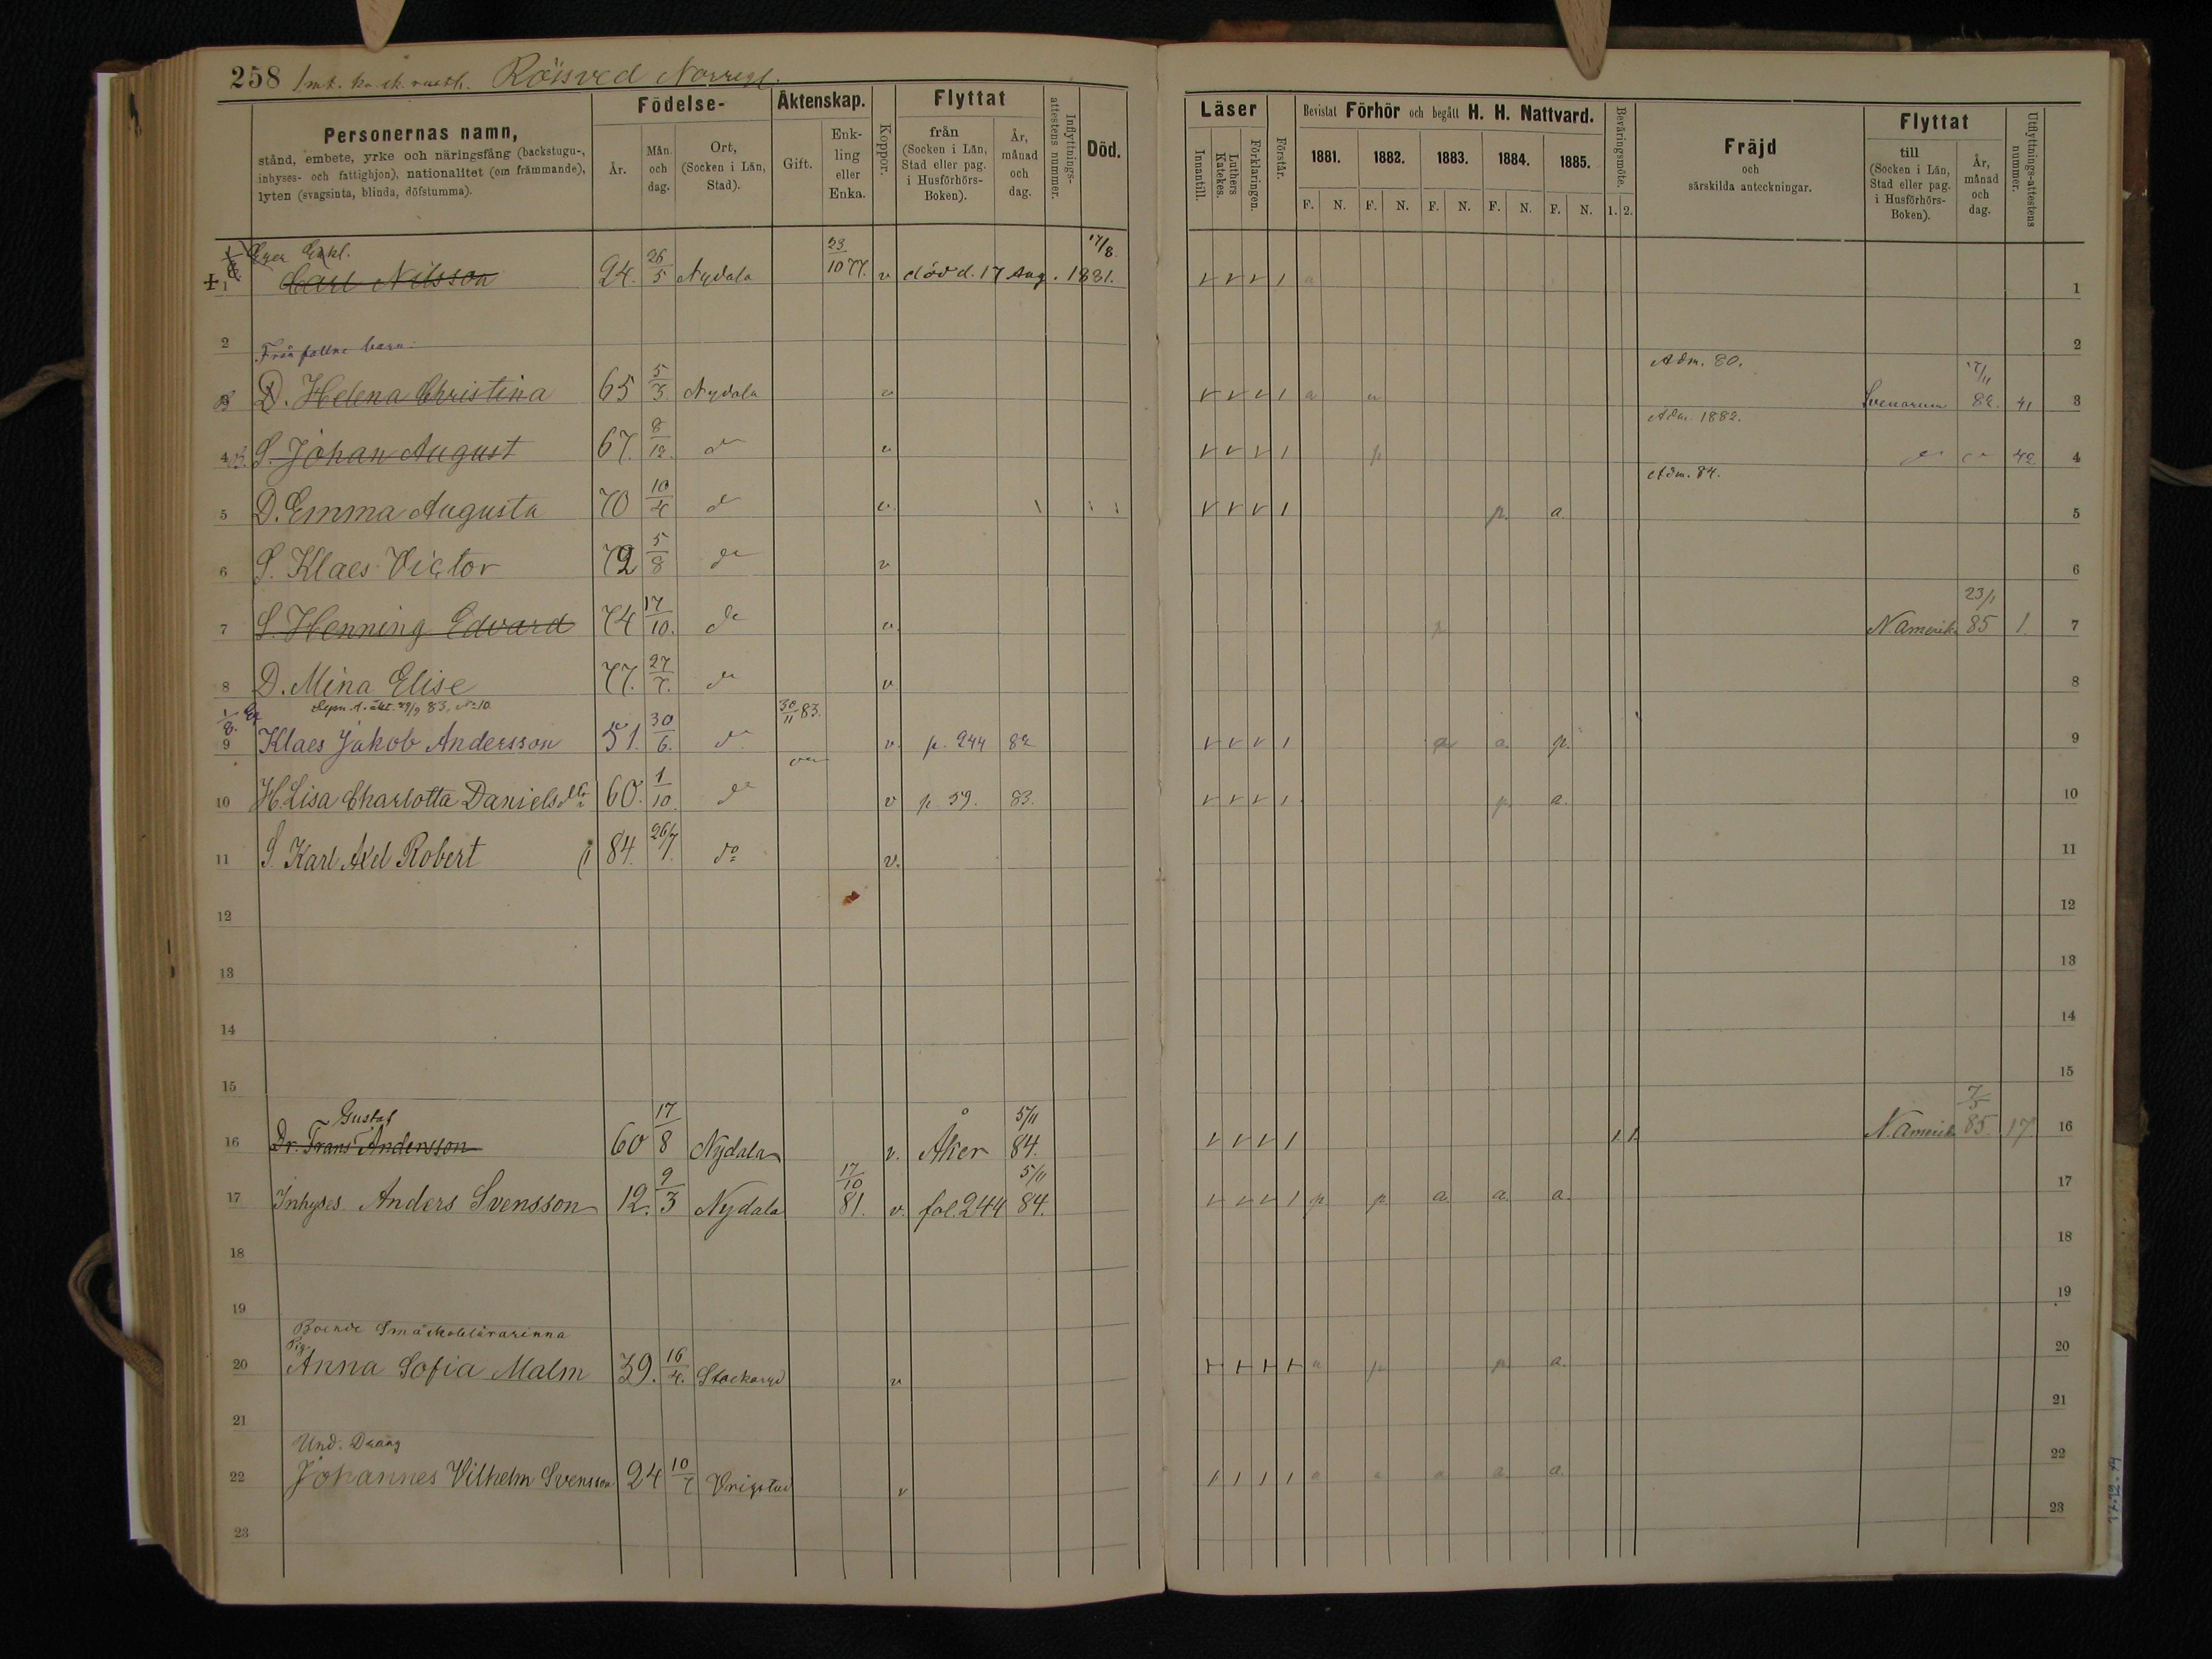 258 1 mt. Röisved Norreg.
Personernas namn,
stånd, embete, yrke och näringsfång (backstugu-,
inhyses- och fattighjon), nationalitet (om främmande),
lyten (svagsinta, blinda, döfstumma).
Födelse-
År.
Mån. och dag.
Ort, (Socken i Län, Stad).
Äktenskap.
Gift.
Enk- ling eller Enka.
Koppor.
Flyttat
från (Socken i Län, Stad eller pag. i Husförhörs- Boken).
År, månad och dag.
Inflyttnings- attestens nummer.
Död.
Läser
Innantill.
Luthers Katekes.
Förklaringen.
Förstår.
Bevistat Förhör och begått H. H. Nattvard.
1881. 1882. 1883. 1884. 1885.
F. N. F. N. F. N. F. N. F. N.
Beväringsmöte.
1. 2.
Fräjd
och
särskilda anteckningar.
Flyttat
till (Socken i Län, Stad eller pag. i Husförhörs- Boken).
År, månad och dag.
Utflyttnings-attestens nummer.
Enkl. 23/10 17/8
1 Carl Nilsson 24. 26/5 Nydala 77. v död d. 17 Aug. 1881. a 1
2 Från fallne barn 2
Adm. 80. 17/11
3 D. Helena Christina 65 5/3 Nydala v a a Svenarum 82. 41 3
Adm. 1882.
4 S. Johan August 67. 8/12. do v p do do 42 4
Adm. 84.
5 D. Emma Augusta 70 10/4 do v. p. a. 5
6 S. Klaes Victor 72 5/8 do v 6
23/1
7 S. Henning Edvard 74 17/10. do v. p N. Amerika 85 1. 7
8 D. Mina Elise 77. 27/7. do v 8
Lysn. 1. äkt. 29/9 83, No 10. 30/11 83.
9 Klaes Jakob Andersson 51. 30/6. do v. p. 244 82 a a p. 9
10 H. Lisa Charlotta Danielsdtr 60. 1/10. do v p. 59. 83. p a. 10
11 S. Karl Axel Robert 84. 26/7. do v. 11
12 12
13 13
14 14
15 15
Gustaf 5/11 7/5
16 Dr. Frans Andersson 60 17/8 Nydala v. Åker 84. 1. 1. N. Amerika 85. 17. 16
17/10 5/11
17 Inhyses Anders Svensson 12. 9/3 Nydala 81. v. fol. 244 84. p. p. a. a. a. 17
18 18
19 19
Boende Småskolelärarinna
Pig.
20 Anna Sofia Malm 39. 16/4. Stockaryd v a p p a. 20
21 21
Und. Dräng
22 Johannes Vilhelm Svensson 24 10/7 Vrigstad v a a a a a. 22
23 23